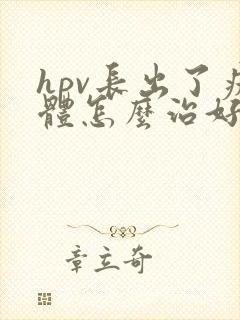 hpv長出了疣
體怎麼治好
章立奇